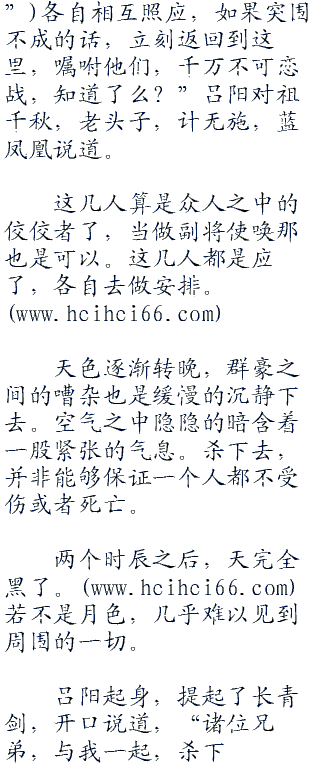 ”)各自相互照应，如果突围
不成的话，立刻返回到这
里，嘱咐他们，千万不可恋
战，知道了么？”吕阳对祖
千秋，老头子，计无施，蓝
凤凰说道。
这几人算是众人之中的
佼佼者了，当做副将使唤那
也是可以。这几人都是应
了，各自去做安排。
(www.hcihci66.com)
天色逐渐转晚，群豪之
间的嘈杂也是缓慢的沉静下
去。空气之中隐隐的暗含着
一股紧张的气息。杀下去，
并非能够保证一个人都不受
伤或者死亡。
两个时辰之后，天完全
黑了。(www.hcihci66.com)
若不是月色，几乎难以见到
周围的一切。
吕阳起身，提起了长青
剑，开口说道，“诸位兄
弟，与我一起，杀下